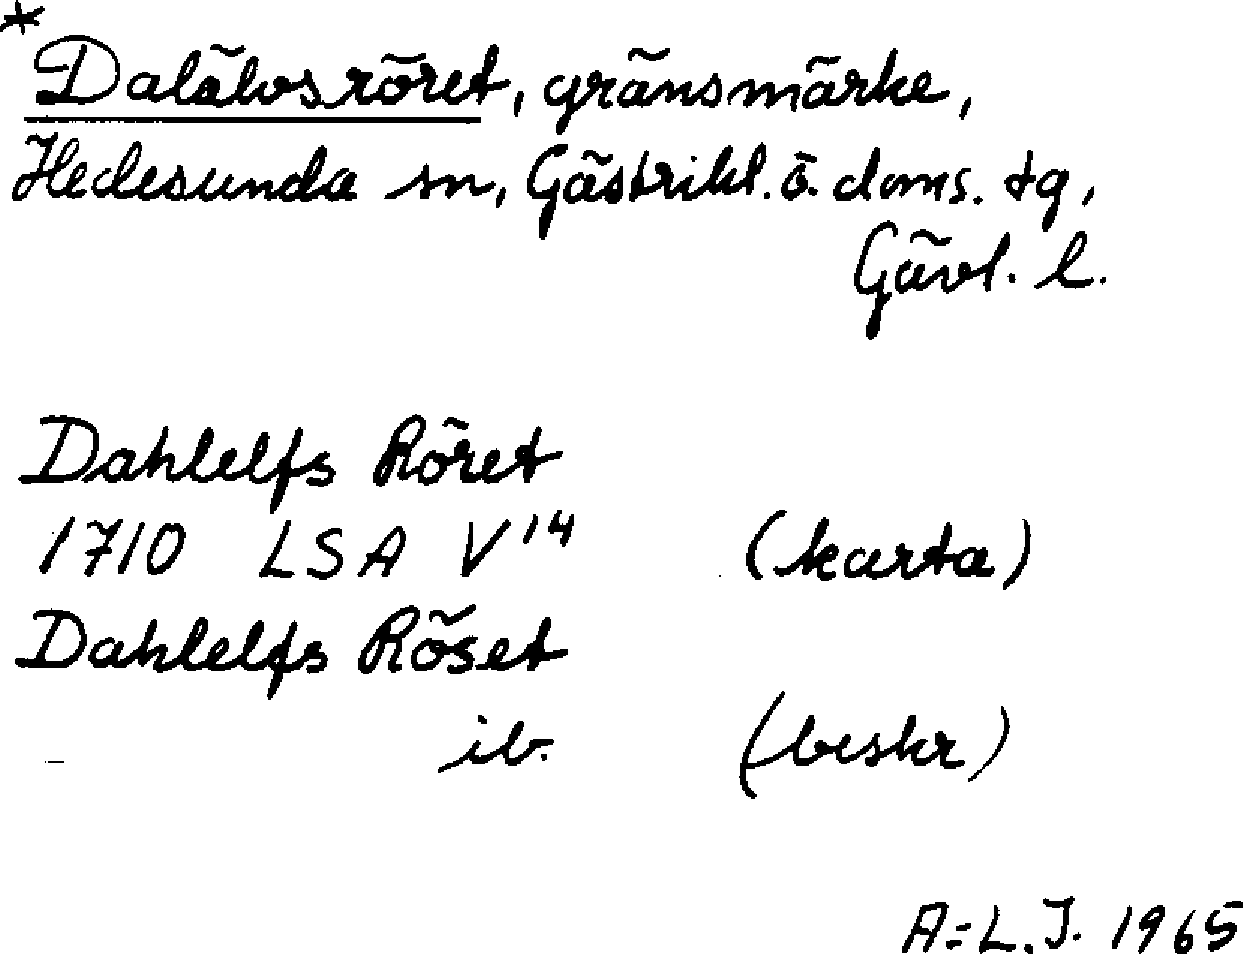 *
Dalälvsröret, gränsmärke,
Hedesunda sn, Gästrikl. ö. doms. tg,
Gävl. l.
Dahlelfs Röret
1710 LSA V14 (karta)
Dahlelfs Röset
– ib. (beskr)
A=L.J. 1965